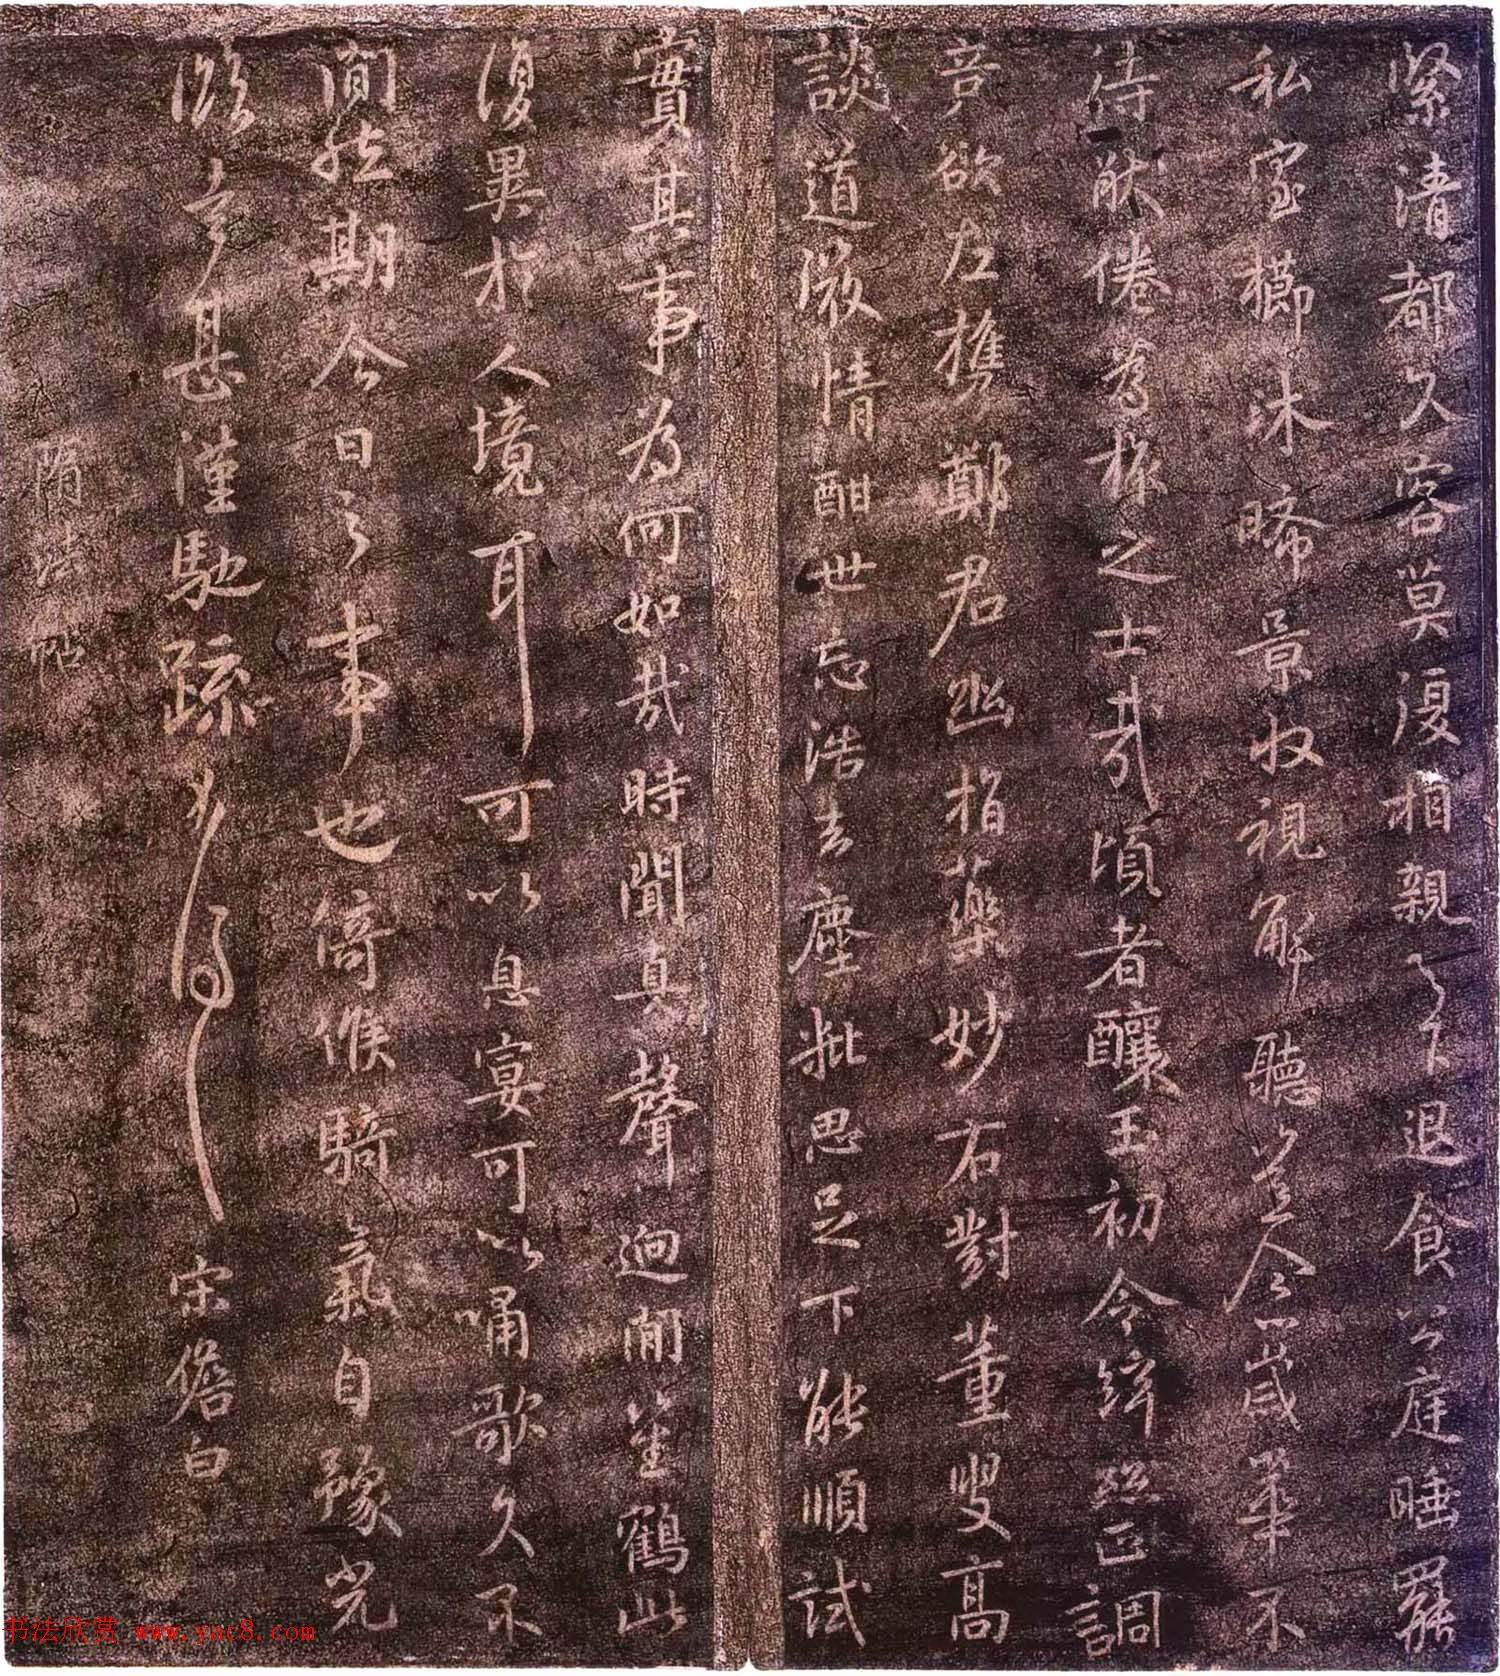 緊清都久客莫復相親之下退食公庭睡罷
私室櫛沐晞景收視解聽並令歲華不
待猒倦之士哉頃者釀玉初令絲正調
竟欲左携鄭君幽指藥妙右對董叟高
談道激情酣世忘浩去塵批思足下能順試
實其事為何如哉時聞真聲迥閒笙鶴此
復異於人境耳可以息宴可以嘯歌久不
聞然期今日之事也倚候騎氣自豫光
臨幸甚謹馳疏不 宋儋白
隋法帖
书法欣赏 www.yac8.com